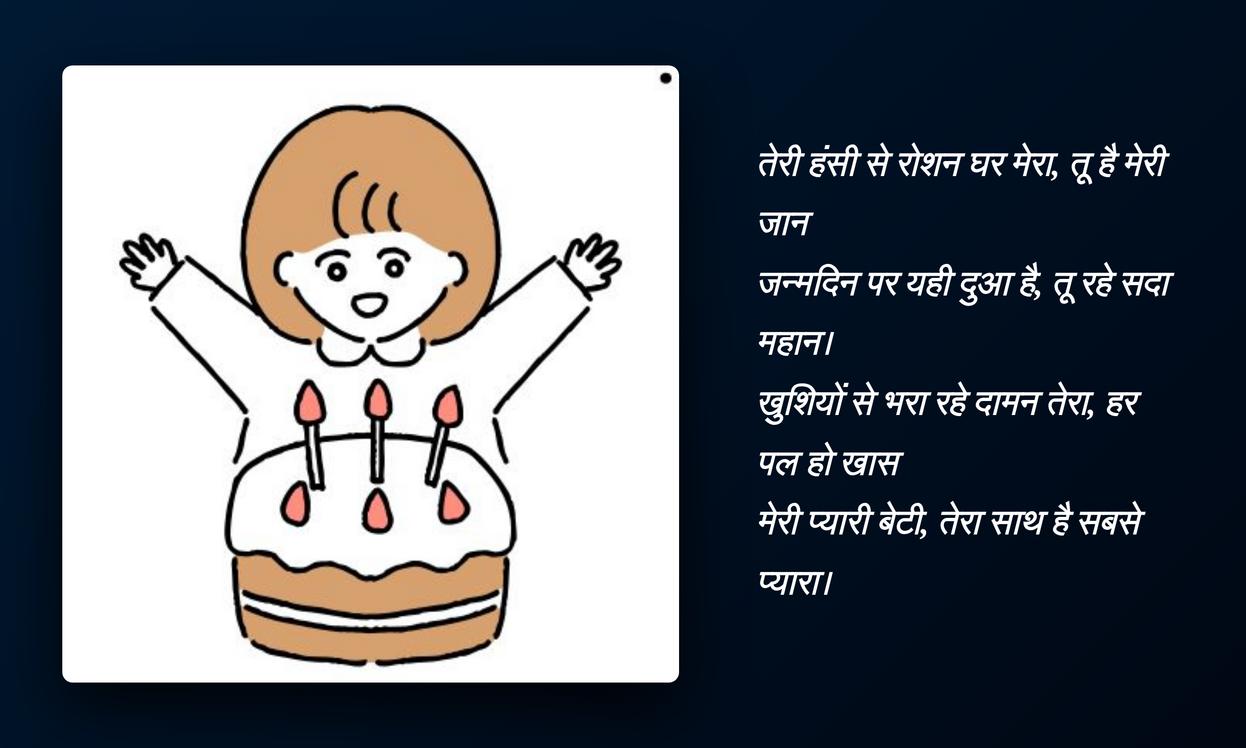 तेरी हंसी से रोशन घर मेरा, तू है मेरी
जान
जन्मदिन पर यही दुआ है, तू रहे सदा
महान।
खुशियों से भरा रहे दामन तेरा, हर
पल हो खास
मेरी प्यारी बेटी, तेरा साथ है सबसे
प्यारा।